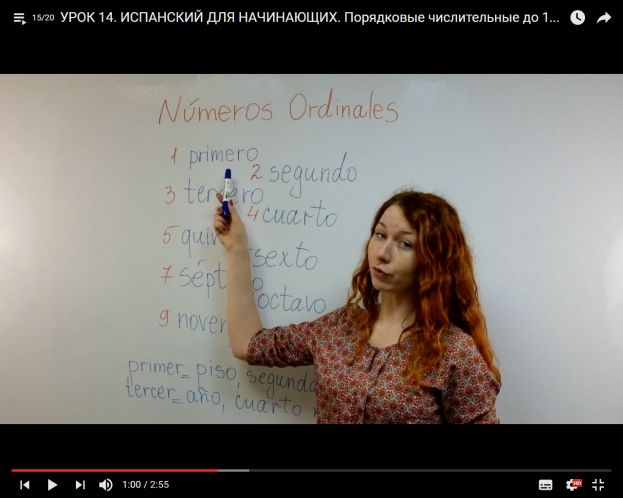 15/20 УРОК 14. ИСПАНСКИЙ ДЛЯ НАЧИНАЮЩИХ. Порядковые числительные до 1...
Números Ordinales
1 primero
2 segundo
3 tercero
4 cuarto
5 quin
sexto
7 sépt o
octavo
9 noven
primer= piso, segunda
tercer= año, cuarto
1:00 / 2:55
HD